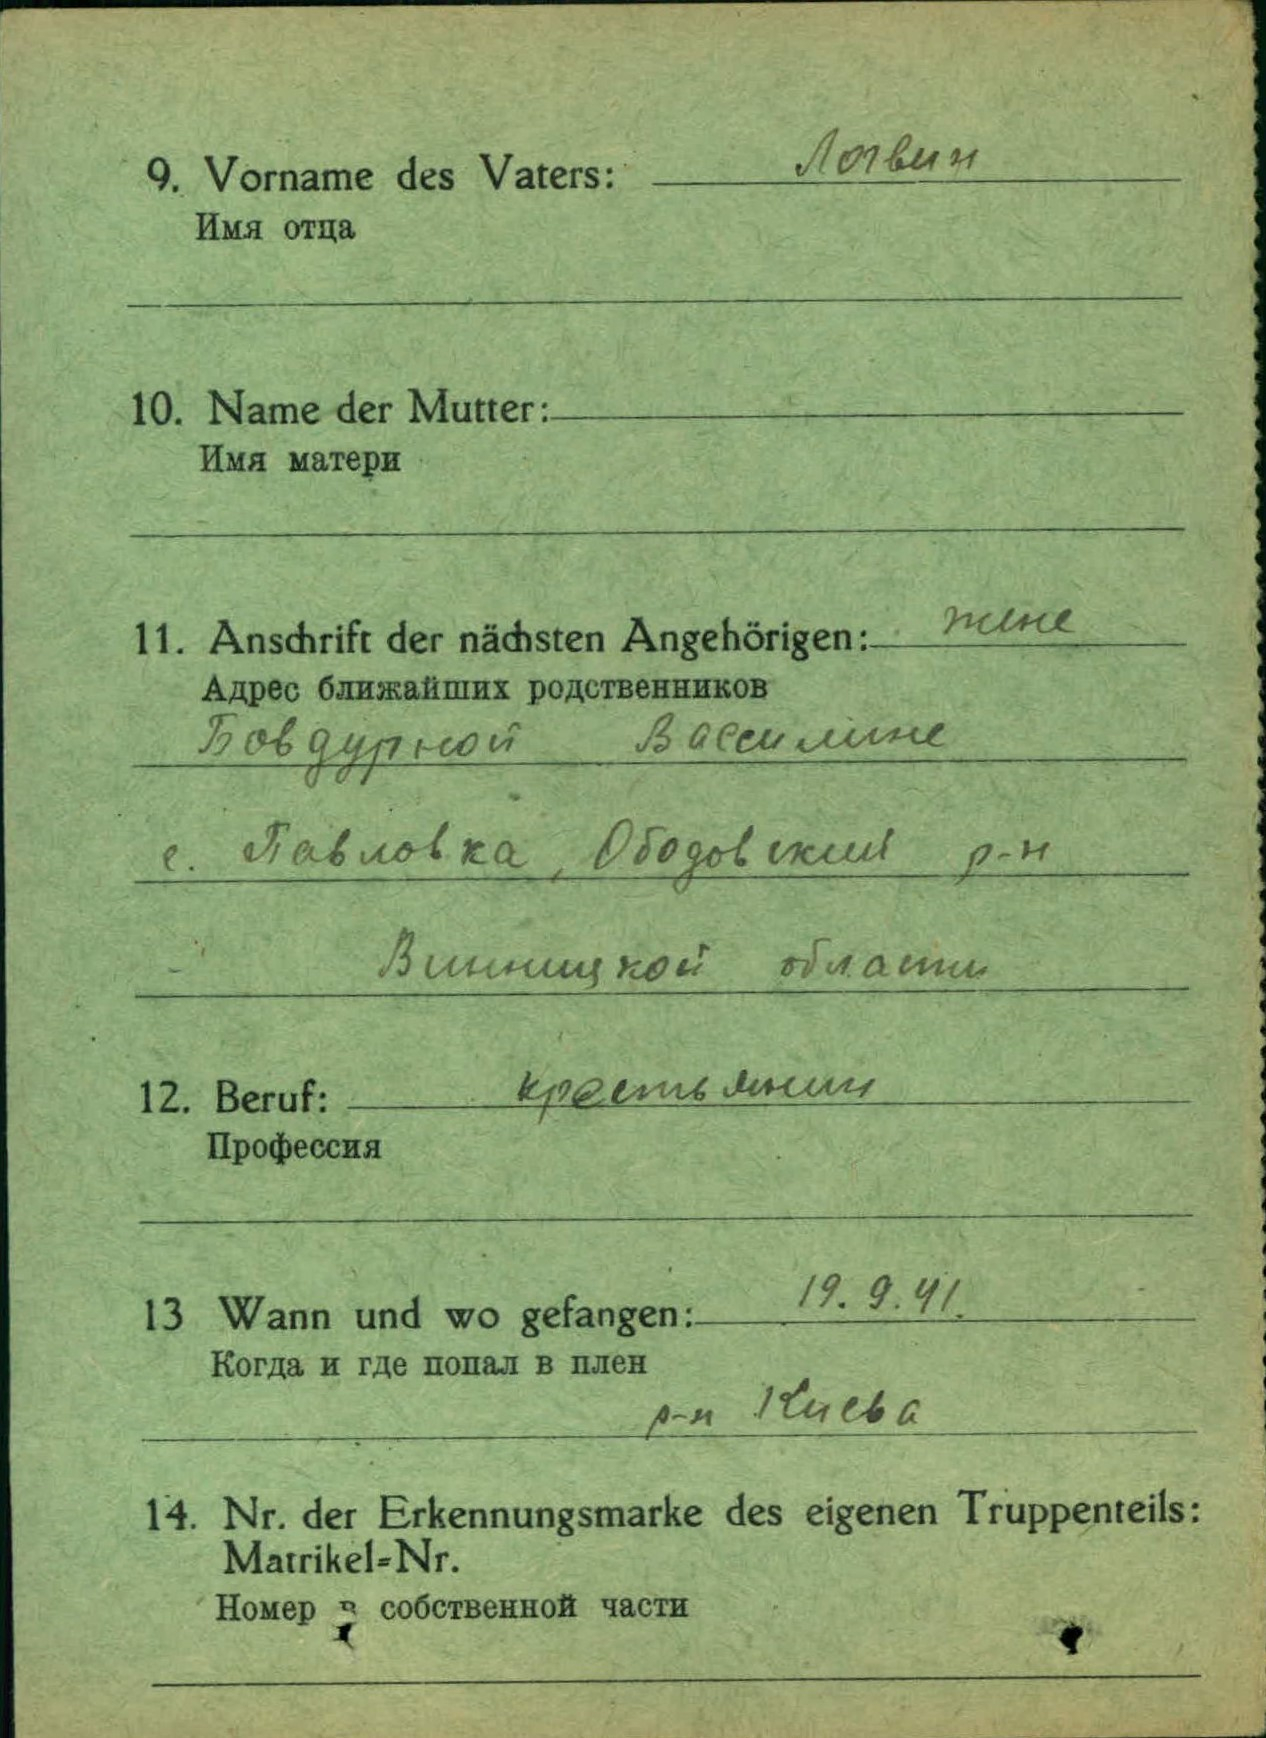 9. Vorname des Vaters: Логвин
Имя отца
10. Name der Mutter:
Имя матери
11. Anschrift der nächsten Angehörigen: жене
Адрес ближайших родственников
Бовдурной Вассилине
с. Павловка, Ободовский р-н
Винницкой области
12. Beruf: крестьянин
Профессия
13 Wann und wo gefangen: 19.9.41.
Когда и где попал в плен
р-н Киева
14. Nr. der Erkennungsmarke des eigenen Truppenteils:
Matrikel=Nr.
Номер в собственной части